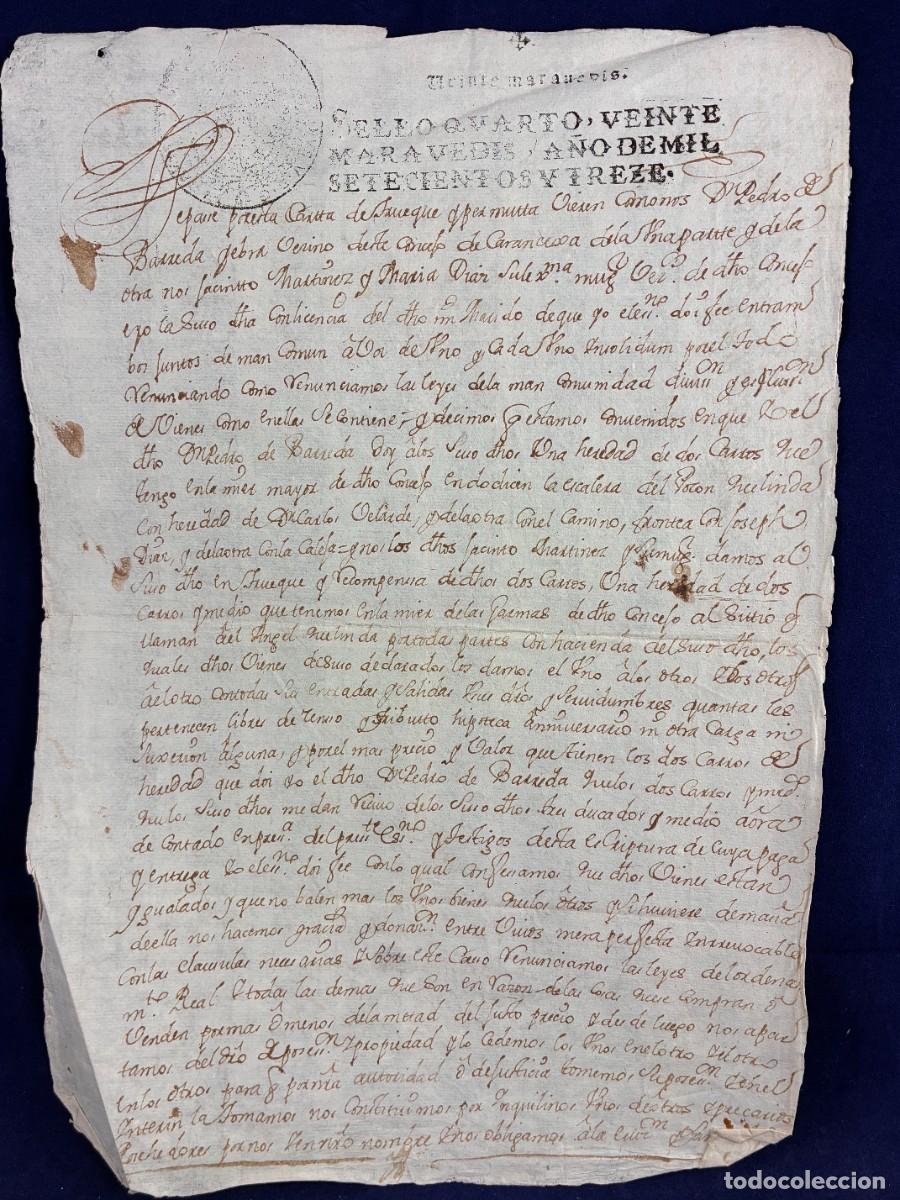 Veinte maravedis.
SELLO QVARTO, VEINTE
MARAVEDIS, AÑO DE MIL
SETECIENTOS Y TREZE.
Sepase por esta Cartta de trueque y permutta Vieren como nos Dn Pedro de
Barreda Vecino deste Concejo de Carancexa de la Una partte y de la
otra nos Jacintto Martinez y Maria Diaz su lexma mugr Vecs de dho Concejo
e yo la Suso dha Con licencia del dho mi Marido de que yo el essno doi fee entram
bos Juntos de man comun a Voz de Uno y Cada Uno Insolidum por el todo
Renunciando como Renunciamos las leyes de la man comunidad divisn y
de Vienes como en ellas Se Contiene, y decimos q estamos convenidos en que Yo el
dho Dn Pedro de Barreda doy a los Suso dhos Una heredad de dos Carros que
tengo en la mier mayor de dho Concejo en do dicen la escalera del que linda
Con heredad de Dn Carlos Velarde, y de la otra con el Camino, frontea con Joseph
Diaz, y de la otra Con la Calexa, y nos los dhos Jacinto Martinez y su mugr damos al
Suso dho en trueque y recompensa de dhos dos Carros, Una heredad de dos
Carros y medio que tenemos en la mier de las de dho Concejo al Sitio q
llaman del Angel que linda por todas partes con hacienda del Suso dho, los
quales dhos Vienes de Suso declarados los damos el Uno a los otros Y los otros
a el otro con todas Sus entradas y Salidas Usos dros y Servidumbres quantas les
pertenecen libres de Censo y tributo hipoteca Anniversario ni otra Carga ni
Suxecion alguna, y por el mas precio y Valor que tienen los dos Carros de
heredad que doi yo el dho Dn Pedro de Barreda que los dos Carros y medo
que los Suso dhos me dan Recivo de los Suso dhos tres ducados y medio aora
de Contado en presa del preste Essno y testigos desta escriptura de Cuya paga
y entrega Yo el essno doi fee con lo qual confesamos que dhos Vienes estan
Ygualados y que no balen mas los Unos bienes que los otros y Si huviere demasia
de ella nos hacemos gracia y donacn entre Vivos mera perfecta Irrevocable
Con las Clausulas necesarias Y Sobre este Caso Renunciamos las leyes del ordena
mto Real Y todas las demas que son en razon de las cosas que Se Compran o
Venden por mas o menos de la mitad del Justo precio Y desde luego nos apar
tamos del dro posesn Y propiedad y lo Cedemos los Unos en el otro Y el otro
en los otros para q por nra autoridad o de Justicia tomemos Su posesn Y en el
Interin la tomamos nos Constituimos por Inquilinos Unos de otros Y precarios
por nos Y en nro nombre Y nos obligamos a la
todocoleccion
todocoleccion.net